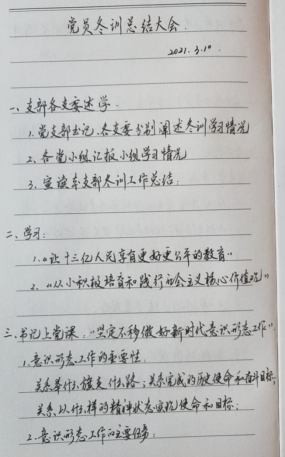 党员冬训总结大会.
2021.3.10
一、支部各支委述学.
1、党支部书记、各支委分别阐述冬训学习情况
2、各党小组汇报小组学习情况
3、宣读本支部冬训工作总结:
二、学习:
1、"让十三亿人民享有更好更公平的教育"
2、"从小积极培育和践行社会主义核心价值观"
三、书记上党课:"坚定不移做好新时代意识形态工作"
1、意识形态工作的重要性.
关系举什么旗走什么路;关系完成的历史使命和奋斗目标,
关系以什么样的精神状态实现使命和目标;
2、意识形态工作的主要任务: